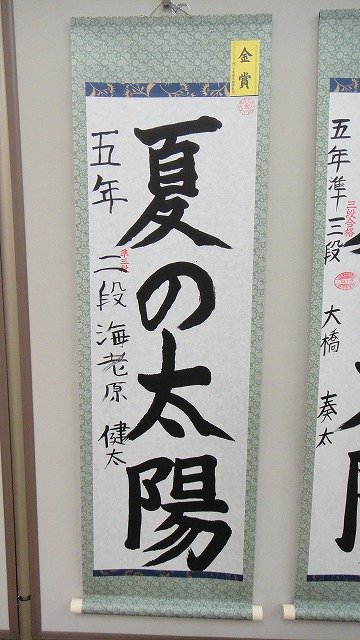 金賞
夏の太陽
五年 二段 海老原 健太
準三段
五年 準三段 大橋 奏太
三段合格